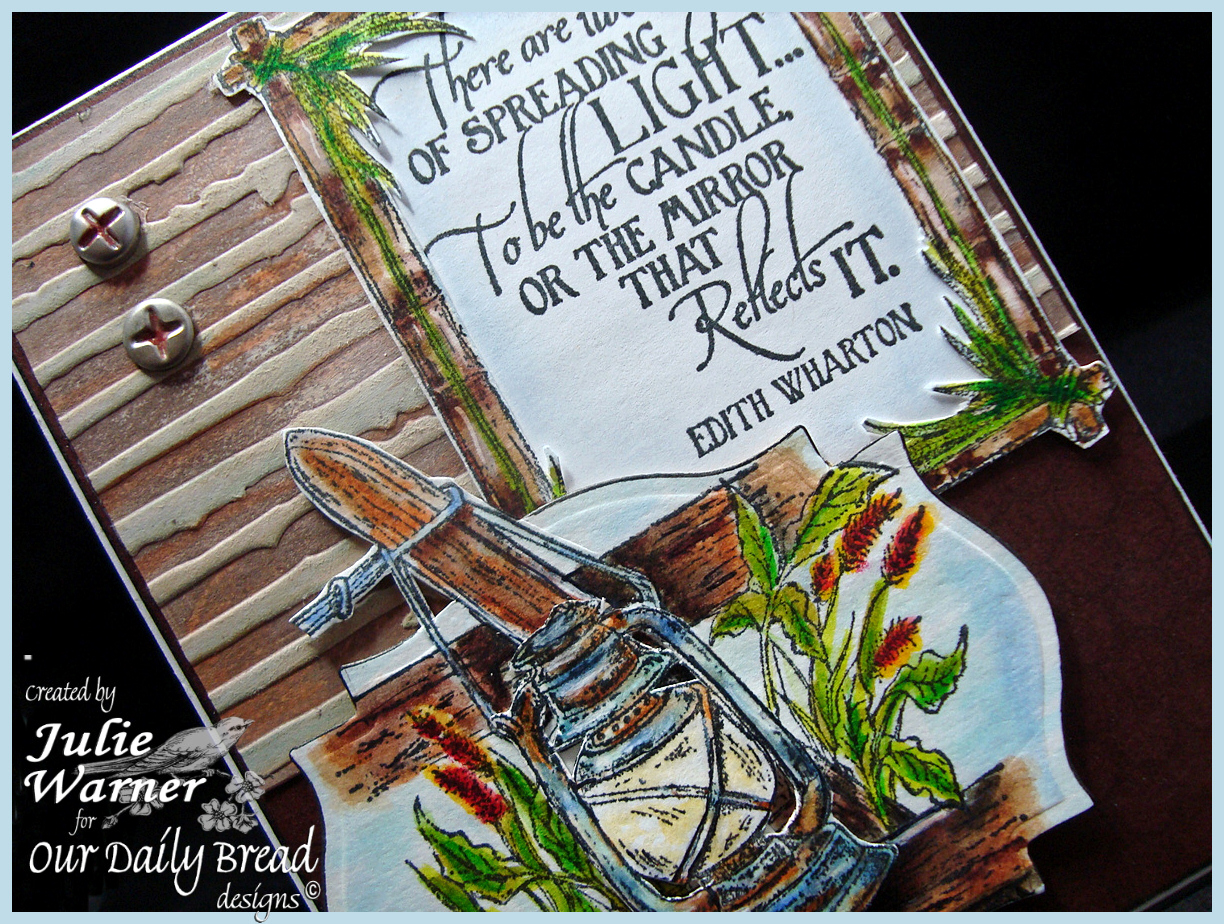 There are
OF SPREADING
LIGHT...
To be the CANDLE,
OR THE MIRROR
THAT
Reflects IT.
EDITH WHARTON
Created by
Julie
Warner
for
Our Daily Bread
designs©